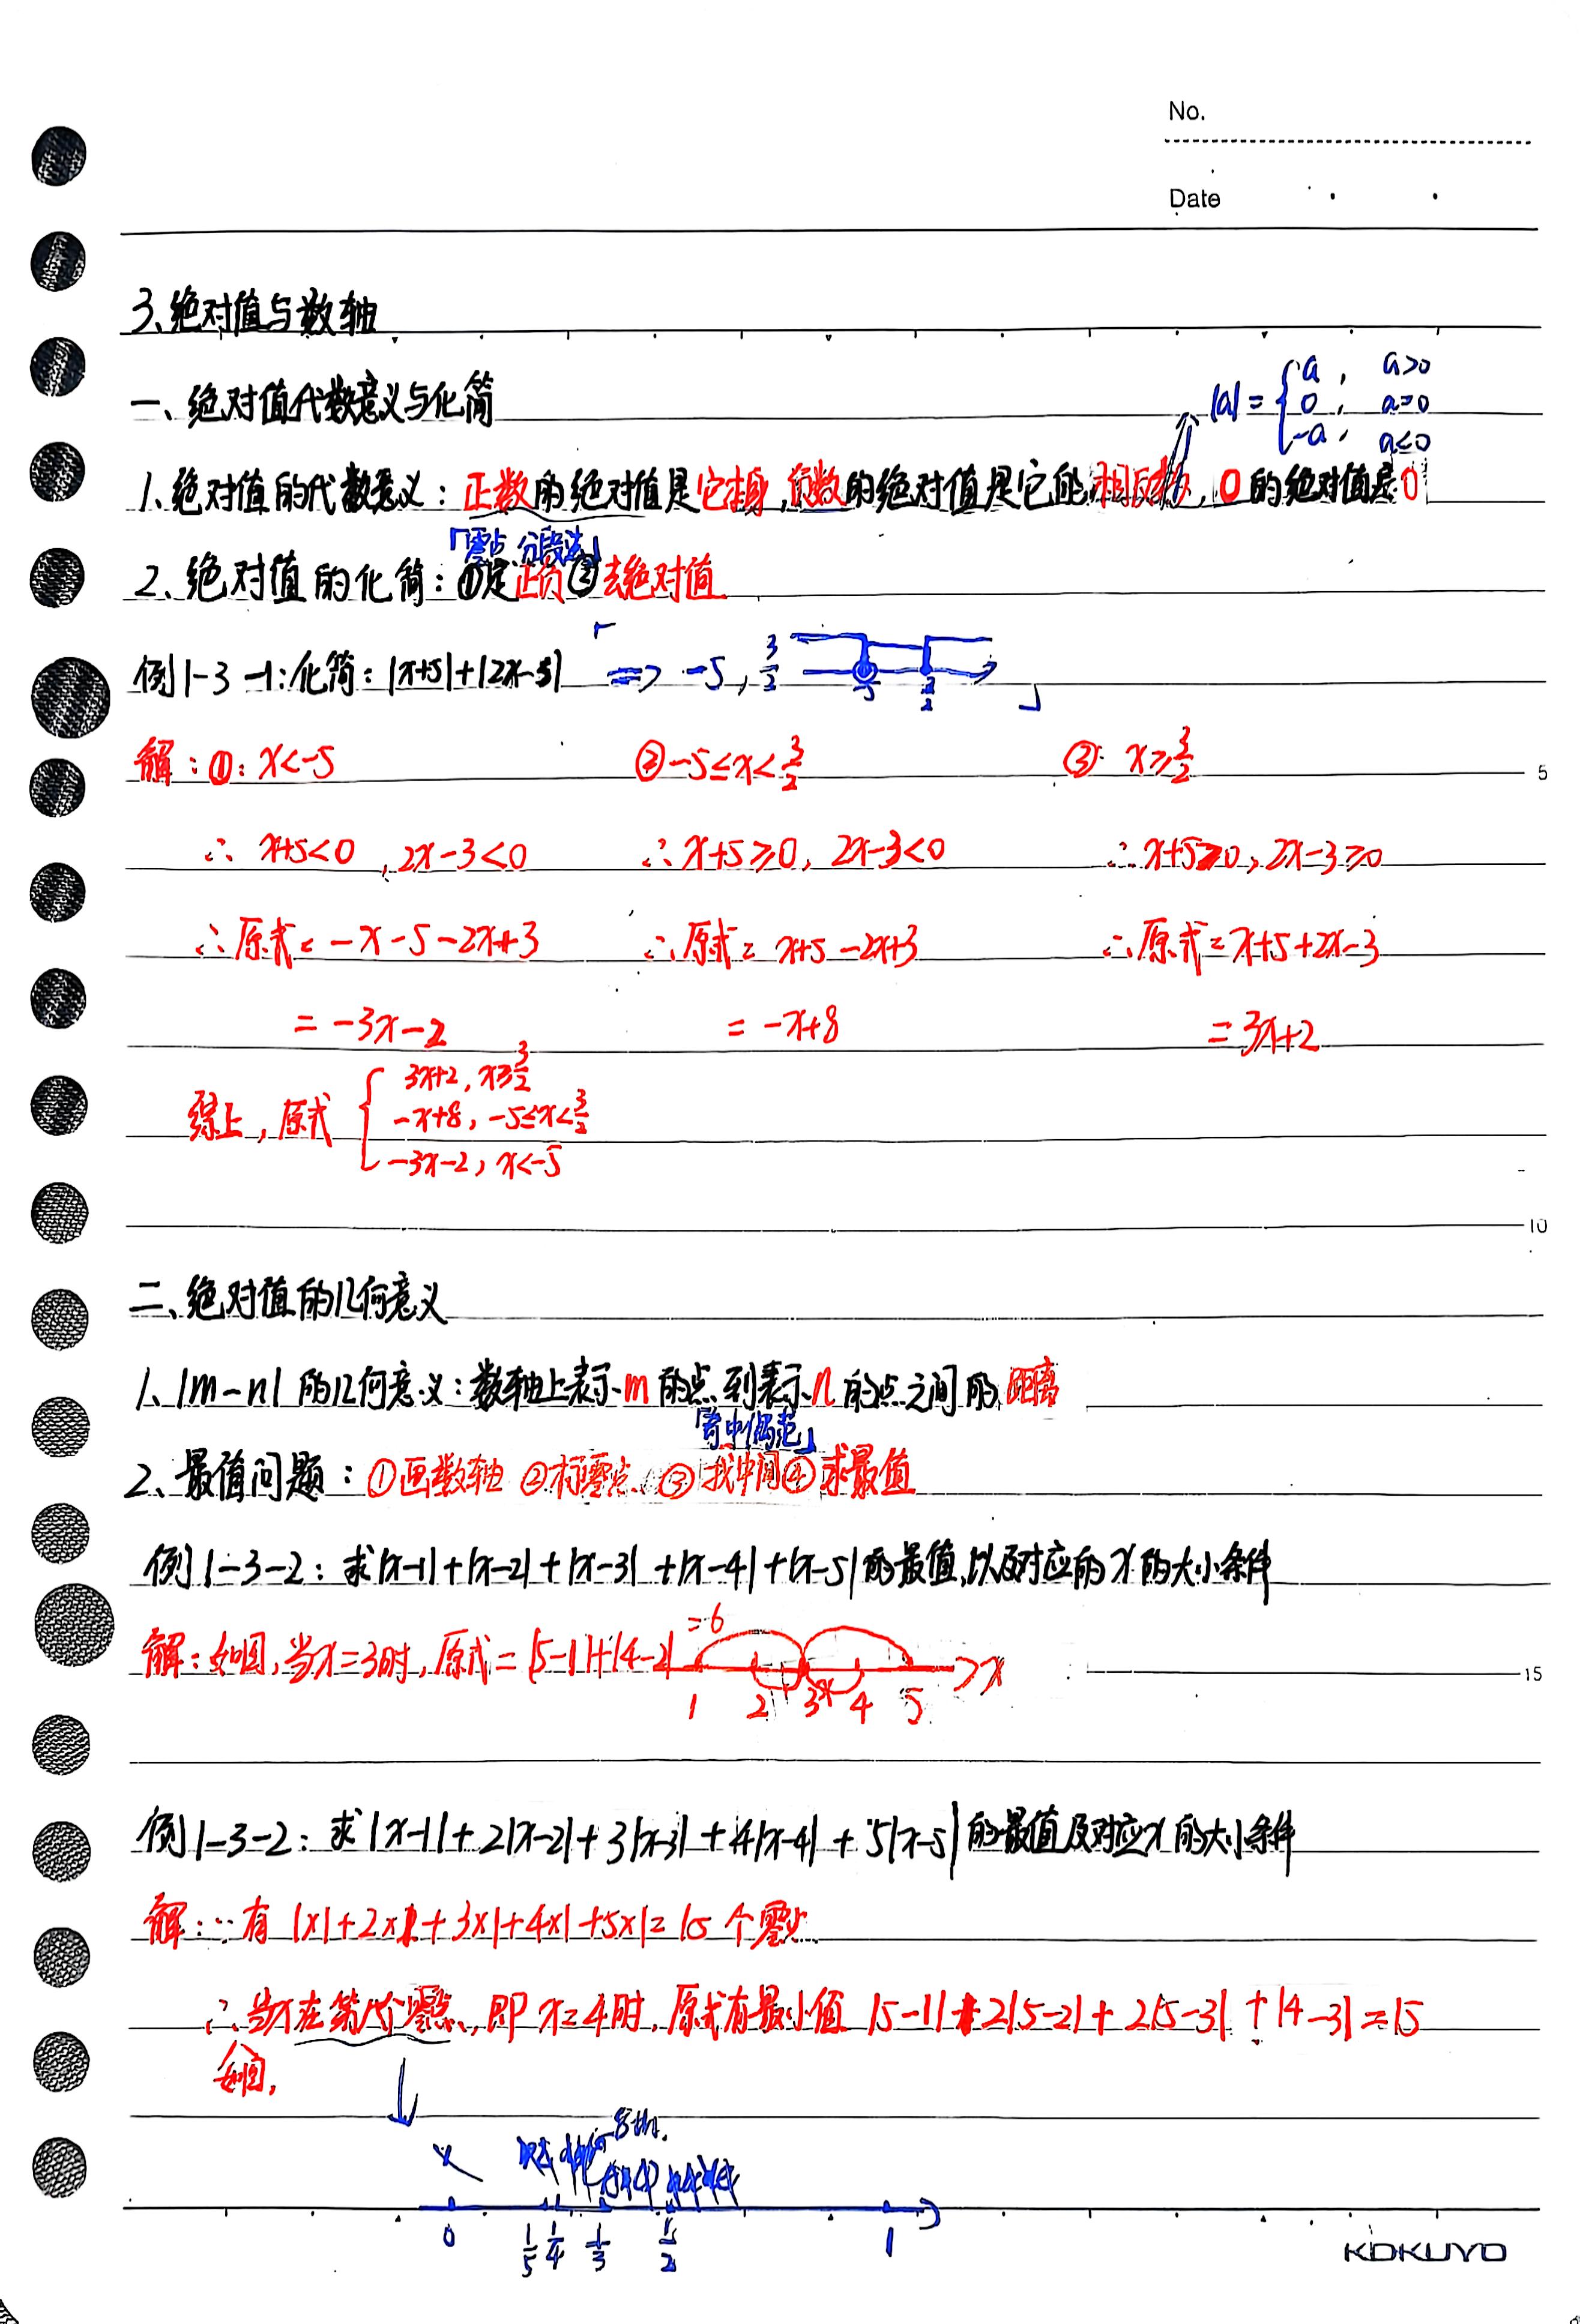 No.
Date
3、绝对值与数轴
一、绝对值代数意义与化简
|a| = { a, a>0
0, a=0
-a, a≤0
1、绝对值的代数意义：正数的绝对值是它本身，负数的绝对值是它的相反数，0的绝对值是0
「零点分段法」
2、绝对值的化简：①定正负②去绝对值
例1-3-1：化简：|x+5|+|2x-3| 「=> -5, 3/2 -5 3/2 」
解：①：x<-5 ②-5≤x<3/2 ③ x≥3/2
5
∴ x+5<0, 2x-3<0 ∴ x+5≥0, 2x-3<0 ∴ x+5≥0, 2x-3≥0
∴原式= -x-5-2x+3 ∴原式= x+5-2x+3 ∴原式=x+5+2x-3
= -3x-2 = -x+8 = 3x+2
综上，原式 { 3x+2, x≥3/2
-x+8, -5≤x<3/2
-3x-2, x<-5
10
二、绝对值的几何意义
1、|m-n| 的几何意义：数轴上表示m的点到表示n的点之间的距离
「奇中偶范」
2、最值问题：①画数轴 ②标零点 ③找中间④求最值
例1-3-2：求|x-1|+|x-2|+|x-3|+|x-4|+|x-5|的最值，以及对应的x的大小条件
解：如图，当x=3时，原式=|5-1|+|4-2| =6
1 2 3 4 5 x
15
例1-3-2：求|x-1|+2|x-2|+3|x-3|+4|x-4|+5|x-5|的最值及对应x的大小条件
解：∵有 1×1+2×1+3×1+4×1+5×1=15个零点
∴当x在第八个零点，即x=4时，原式有最小值 |5-1|+2|5-2|+2|5-3|+|4-3|=15
如图，
8th.
0 1/5 1/4 1/3 1/2 1
KOKUYO